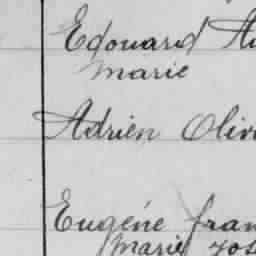 Edouard
Marie
Adrien Oliv
Eugéne fran
Marie Jos